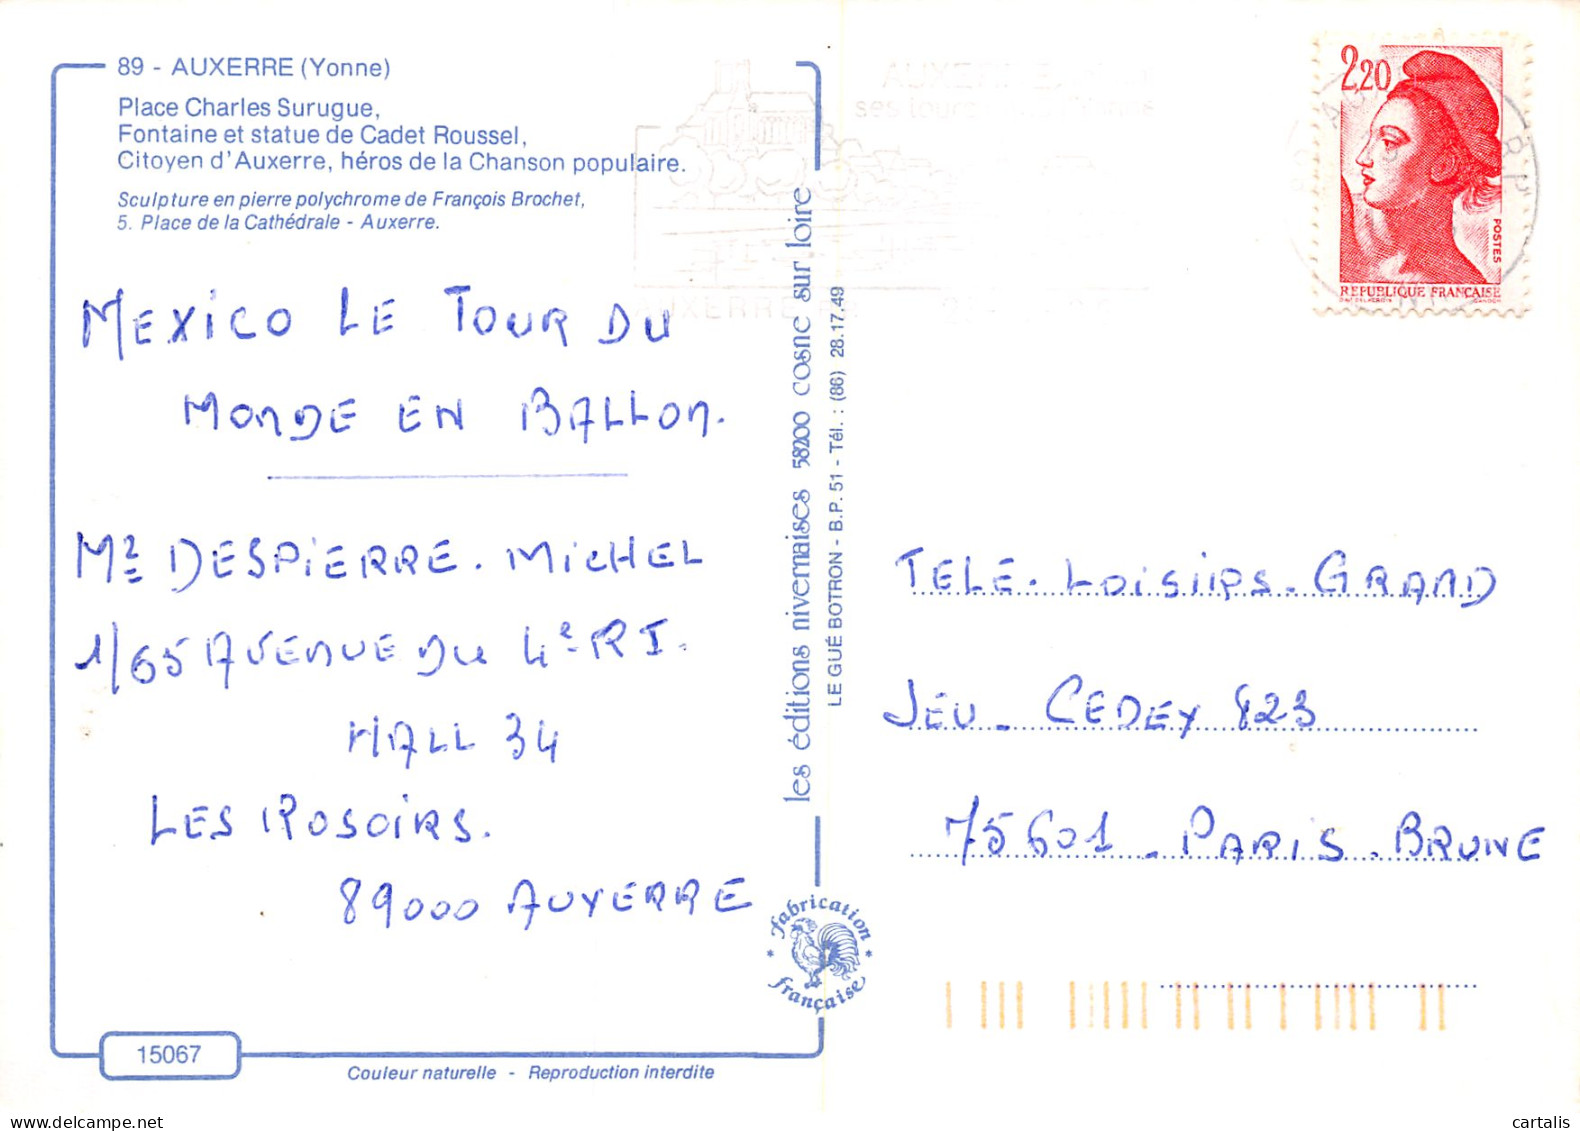 89 - AUXERRE (Yonne)
Place Charles Surugue,
Fontaine et statue de Cadet Roussel,
Citoyen d'Auxerre, héros de la Chanson populaire.
Sculpture en pierre polychrome de François Brochet,
5. Place de la Cathédrale - Auxerre.
MEXICO LE TOUR DU
MONDE EN BALLON.
Mr DESPIERRE. MICHEL
1/65 AVENUE DU 4e RI.
HALL 34
LES ROSOIRS.
89000 AUXERRE
15067
Couleur naturelle - Reproduction interdite
les éditions nivernaises 58200 cosne sur loire
LE GUÉ BOTRON - B.P. 51 - Tél. : (86) 28.17.49
fabrication
française
AUXERRE
ses tours
AUXERRE
2,20
POSTES
REPUBLIQUE FRANÇAISE
TELE-LOISIRS-GRAND
JEU - CEDEX 823
75601 - PARIS-BRUNE
cartalis